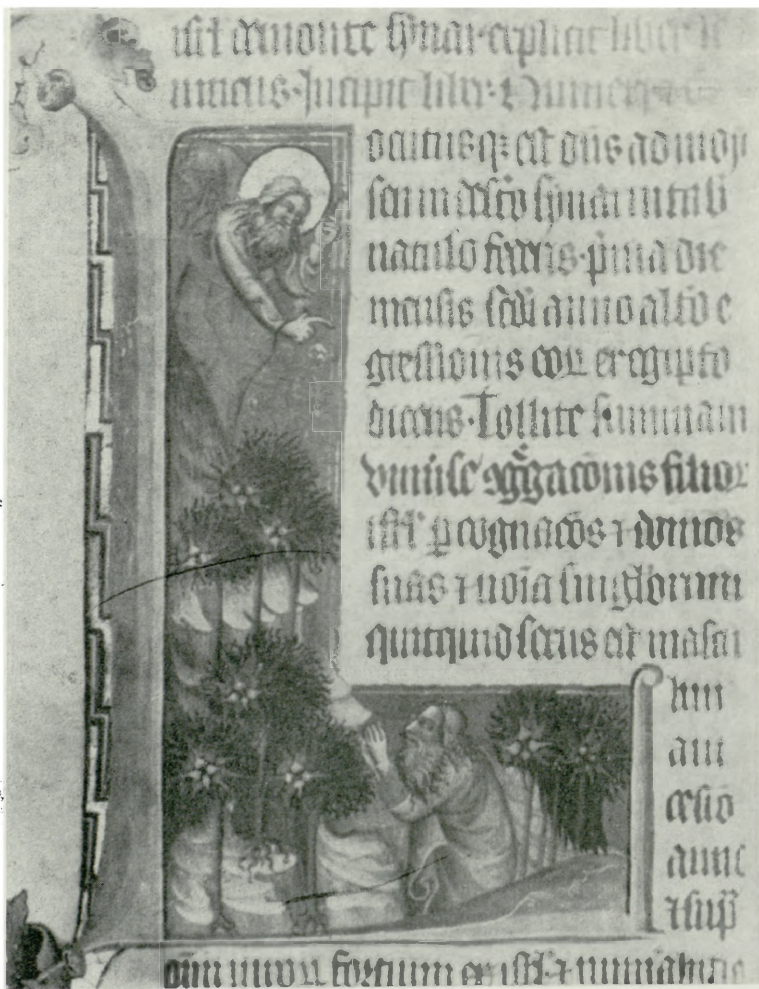 isrl' de monte synai. explicit liber le
uiticus. Incipit liber
ocutusq; est dn̄s ad moy
sen in desto synai in tab
naculo federis. p̄ma die
mensis scd̄i anno alt̄o e
gressionis eoꝝ ex egipto
dicens. Tollite summam
uniu̾se ɔg̾gac̄onis filioꝝ
isrl' ꝑ cognac̄oēs ⁊ domos
suas ⁊ noīa singlorum
quicquid sexus est mascu
lini
a ui
cesīo
anno
⁊ sup̄
om̄i uiroꝝ fortium ex isrl'. ⁊